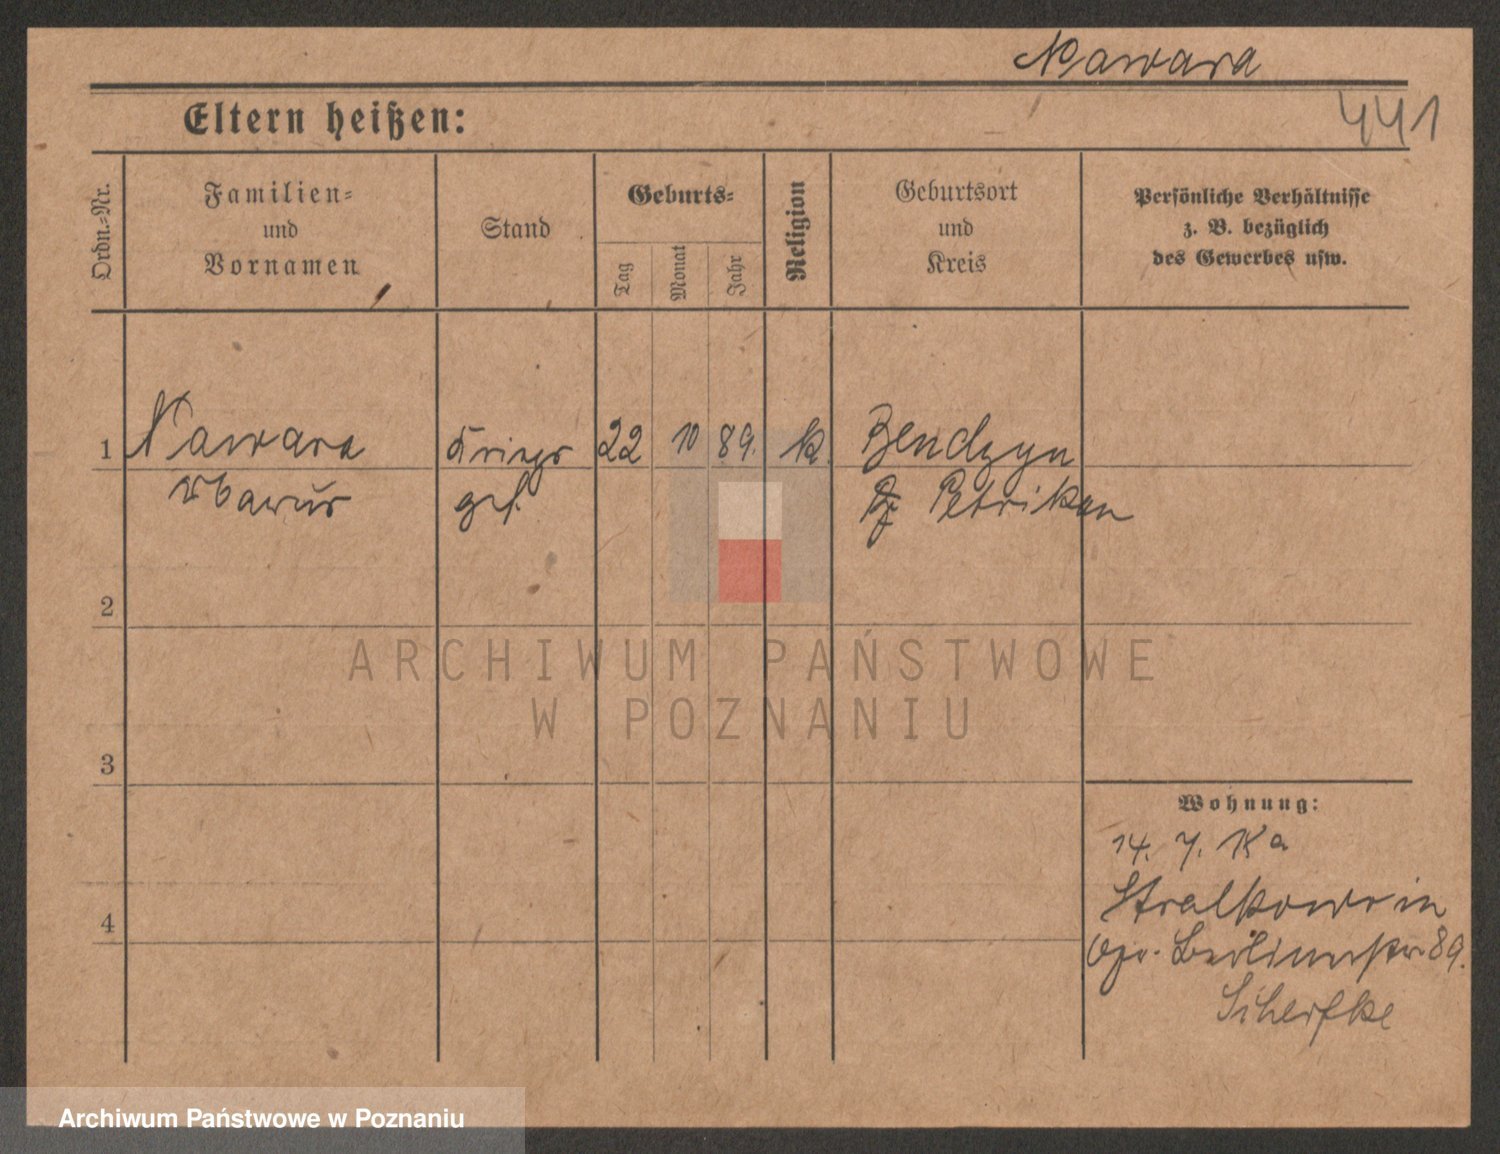 Nawara
441
Eltern heißen:
Ordn.-Nr.
Familien-
und
Vornamen
Stand
Geburts-
Tag
Monat
Jahr
Religion
Geburtsort
und
Kreis
Persönliche Verhältnisse
z. B. bezüglich
des Gewerbes usw.
1 Nawara Kriegs 22 10 89. k. Bendzyn
gef. Petrikau
2
ARCHIWUM PAŃSTWOWE
W POZNANIU
3
Wohnung:
14. 7. Ka
Stralkowo in
4
Berlinerstr. 89.
Scherfke
Archiwum Państwowe w Poznaniu